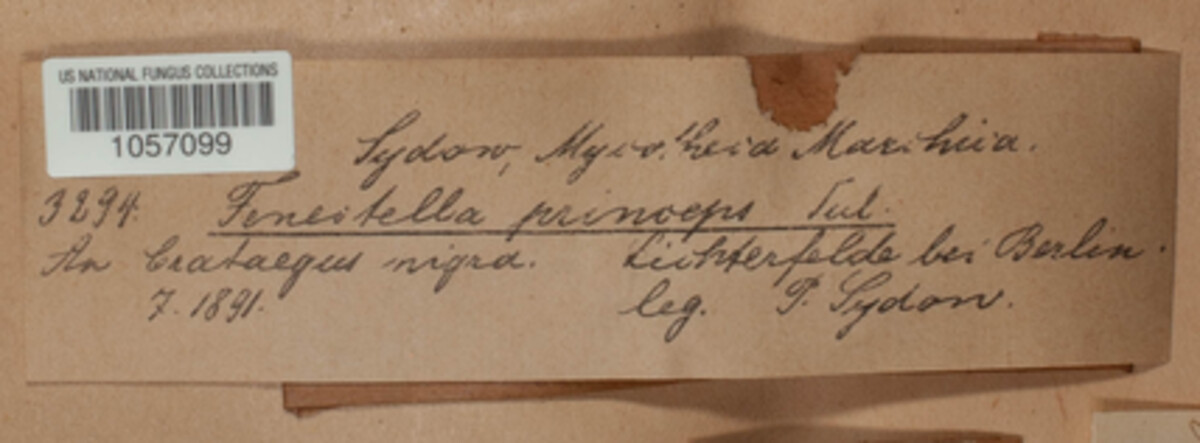 US NATIONAL FUNGUS COLLECTIONS
1057099
Sydow, Mycotheca Marchica.
3294. Fenestella princeps Tul.
An Crataegus nigra. Lichterfelde bei Berlin.
7. 1891. leg. P. Sydow.